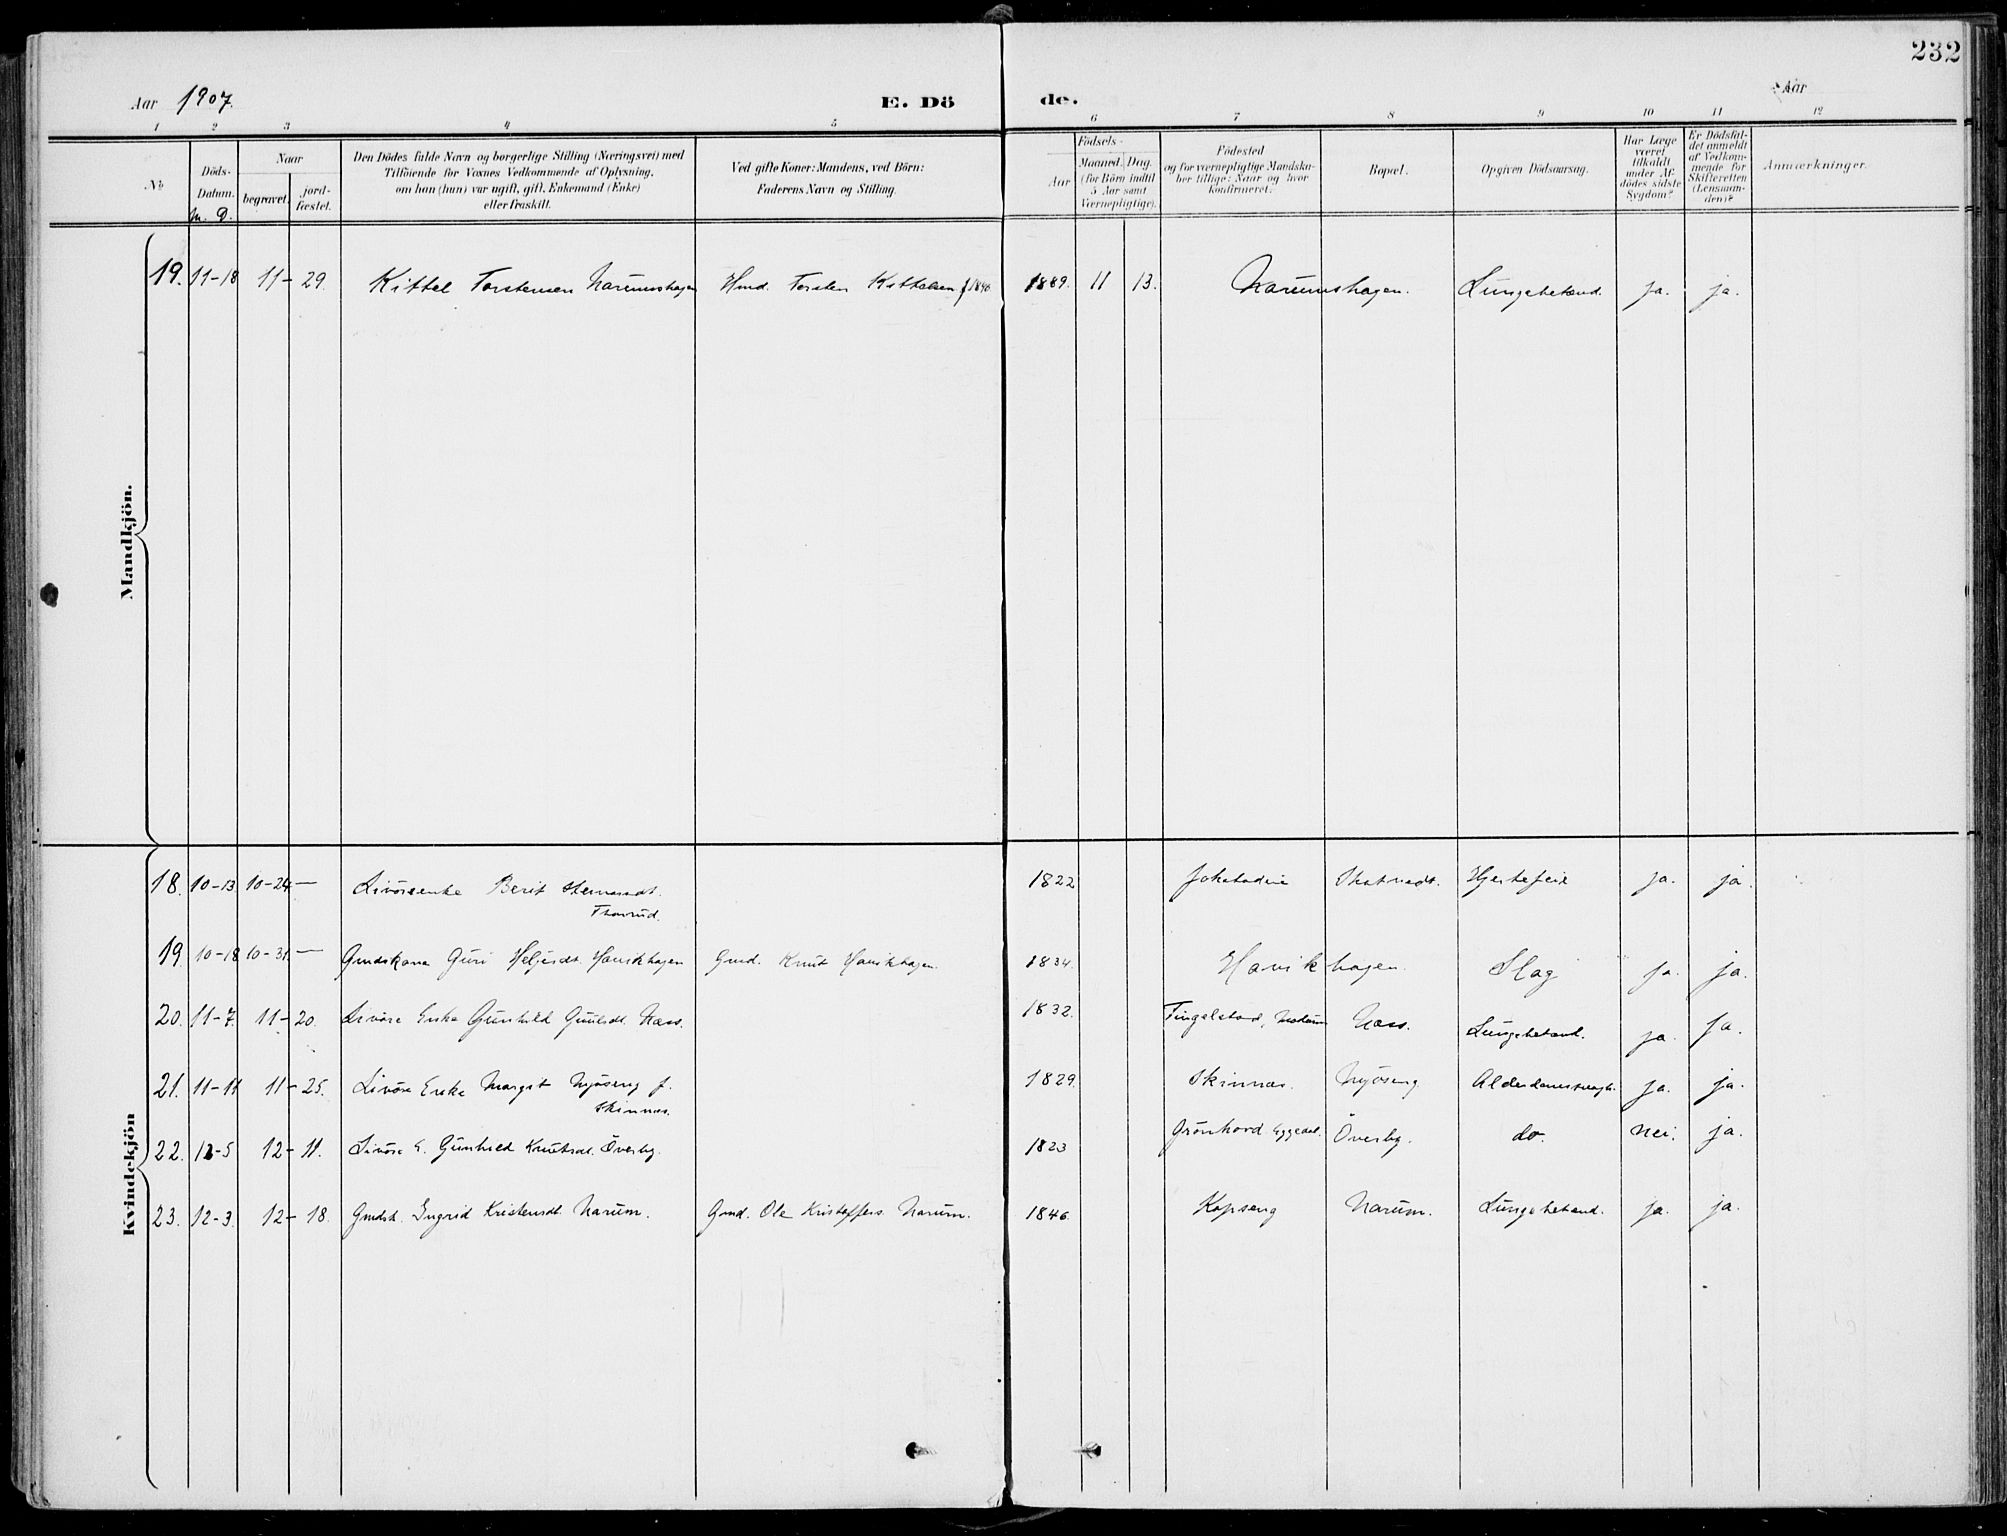 232
Aar 1907. E. Dö de. Aar
1 2 3 4 5 6 7 8 9 10 11 12
№
Döds-Datum. M. D.
Naar begravet. jord-fæstet.
Den Dödes fulde Navn og borgerlige Stilling (Næringsvei) med
Tilföiende for Voxnes Vedkommende af Oplysning,
om han (hun) var ugift, gift, Enkemand (Enke)
eller fraskilt.
Ved gifte Koner: Mandens, ved Börn:
Faderens Navn og Stilling.
Födsels-
Aar Maaned. Dag.
(for Börn indtil
5 Aar samt
Værnepligtige).
Födested
og for værnepligtige Mandska-
ber tillige: Naar og hvor
konfirmeret?
Bopæl.
Opgiven Dödsaarsag.
Har Læge
været
tilkaldt
under Af-
dödes sidste
Sygdom?
Er Dödsfal-
det anmeldt
af Vedkom-
mende for
Skifteretten
(Lensman-
den)?
Anmærkninger.
Mandkjön.
19. 11-18 11- 29. Kittel Torstensen Narumshagen Hmd. Torsten Kittelsen f 1840 1889. 11 13. Narumshagen. Lungebetænd. ja. ja.
Kvindekjön
18. 10-13 10-24 — Livöreenke Berit 1822 Hjertefeil ja. ja.
Thorrud.
19. 10-18 10-31. — Gmdskone Guri Heljesdt. Havikhagen Gmd. Knut Havikhagen. 1834. Havikhagen. Slag ja. ja.
20. 11-7. 11-20. Livöre Enke Gunhild Gulsdt. Næss. 1832. Tingelstad, Modum Næss. Lungebetænd. ja. ja.
21. 11-11 11-25. Livöre Enke Margit Myöseng f. 1829. Skinnes. Myöseng Alderdomssvagh. ja. ja.
Skinnes.
22. 12-5 12-11. Livöre E. Gunhild Knutsdt. Överby. 1823 Grönhovd Eggedal. Överby. do. nei. ja.
23. 12-3. 12-18. Gmdsk. Ingrid Kristensdt. Narum. Gmd. Ole Kristoffers. Narum. 1846. Kopseng Narum. Lungebetænd. ja. ja.